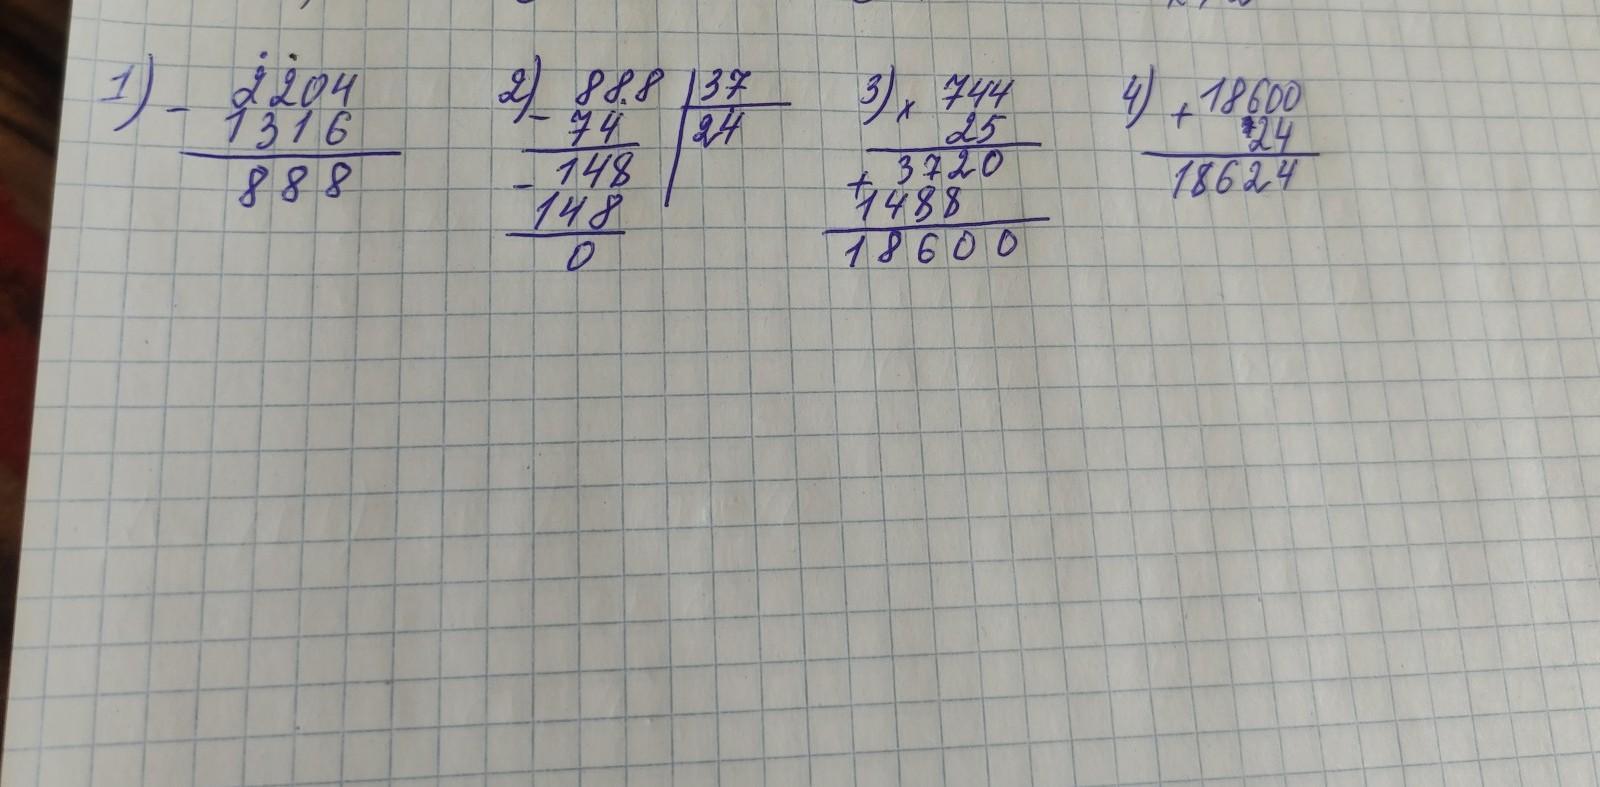 1) - 2204
1316
888
2) - 888 | 37
74 | 24
- 148
148
0
3) x 744
25
+ 3720
1488
18600
4) + 18600
24
18624